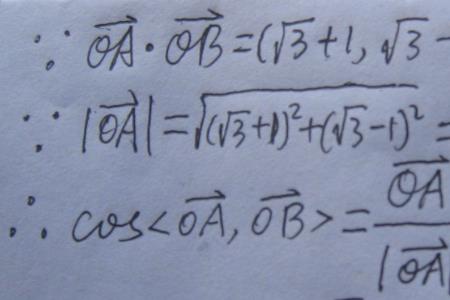 ∵ $\overrightarrow{OA} \cdot \overrightarrow{OB} = (\sqrt{3}+1, \sqrt{3}-$
∵ $|\overrightarrow{OA}| = \sqrt{(\sqrt{3}+1)^2+(\sqrt{3}-1)^2} =$
∴ $\cos<\overrightarrow{OA}, \overrightarrow{OB}> = \frac{\overrightarrow{OA}}{|\overrightarrow{OA}|}$